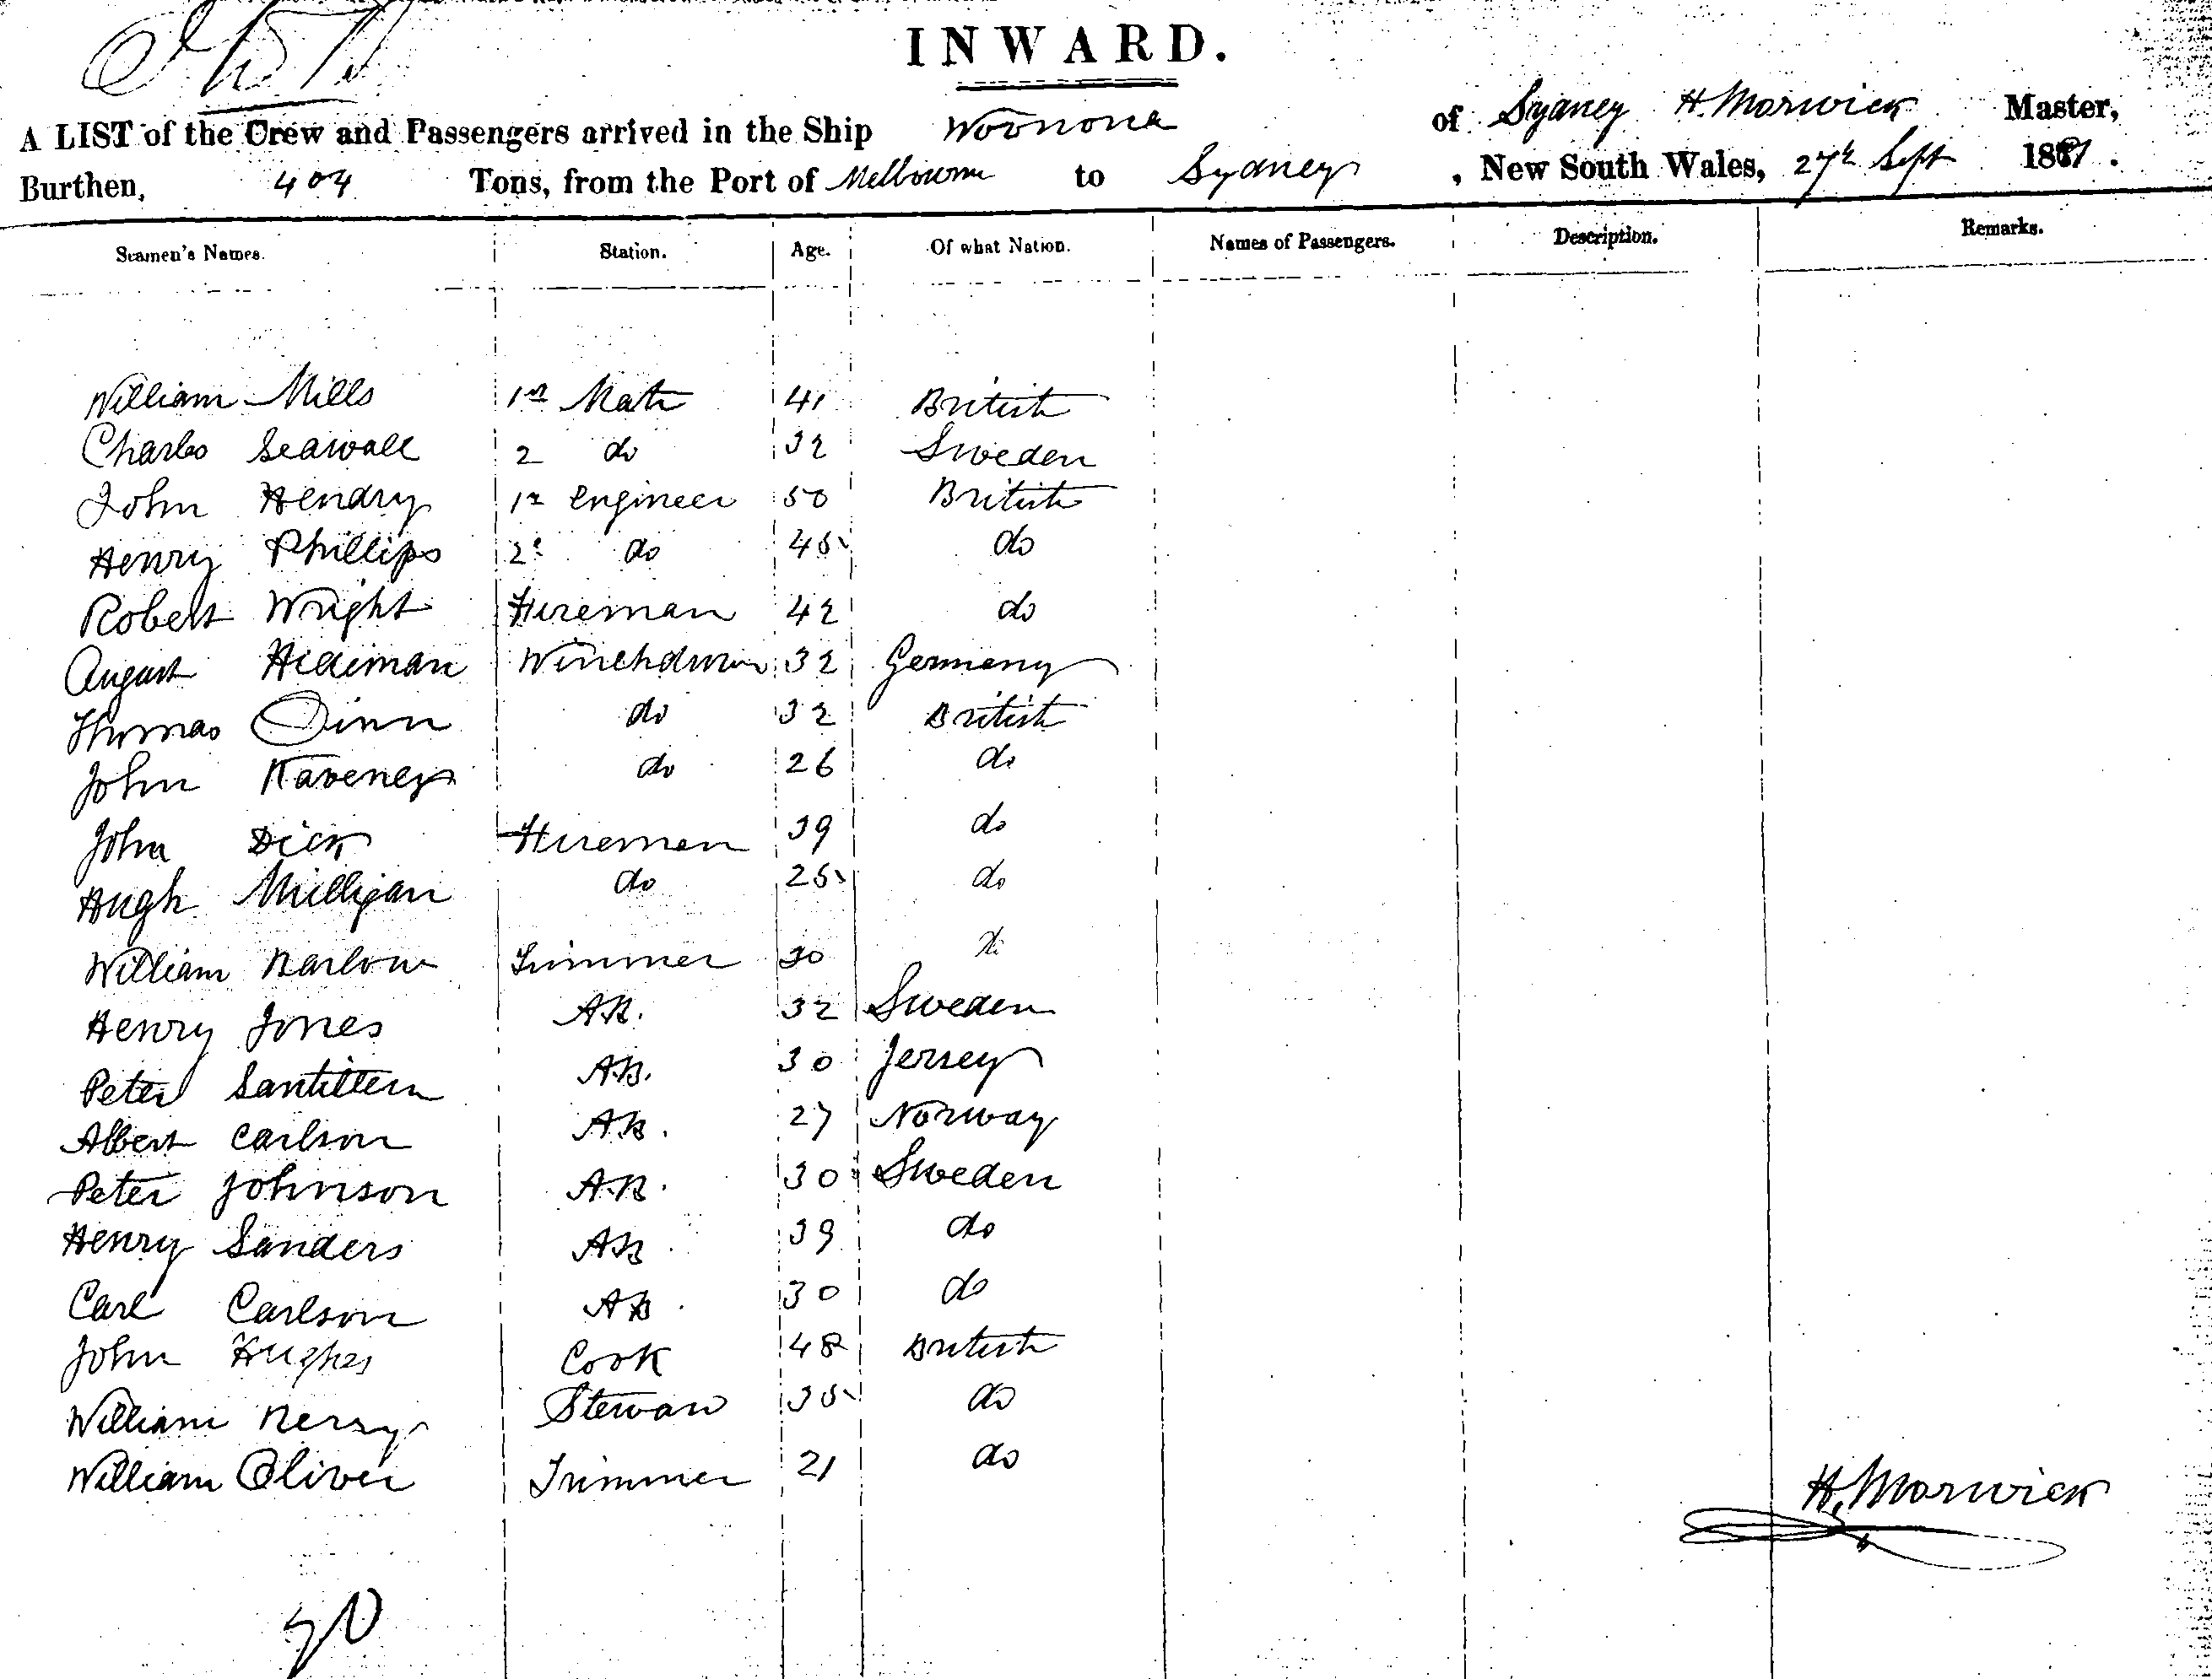 INWARD.
A LIST of the Crew and Passengers arrived in the Ship Woonona of Sydney H. Morwick Master,
Burthen, 404 Tons, from the Port of Melbourne to Sydney, New South Wales, 27th Sept 1881.
Seamen's Names. Station. Age. Of what Nation. Names of Passengers. Description. Remarks.
William Mills 1st Mate 41 British
Charles Seawall 2 do 32 Sweden
John Hendry 1st Engineer 50 British
Henry Phillips 2d do 45 do
Robert Wright Fireman 42 do
August Winchdriver 32 Germany
Thomas Dinn do 32 British
John Kaveney do 26 do
John Dick Fireman 39 do
Hugh Milligan do 25 do
William Barlow Trimmer 30 do
Henry Jones AB. 32 Sweden
Peter AB. 30 Jersey
Albert Carlson AB. 27 Norway
Peter Johnson AB. 30 Sweden
Henry Sanders AB 39 do
Carl Carlson AB. 30 do
John Hughes Cook 48 British
William Steward 35 do
William Oliver Trimmer 21 do
H. Morwick